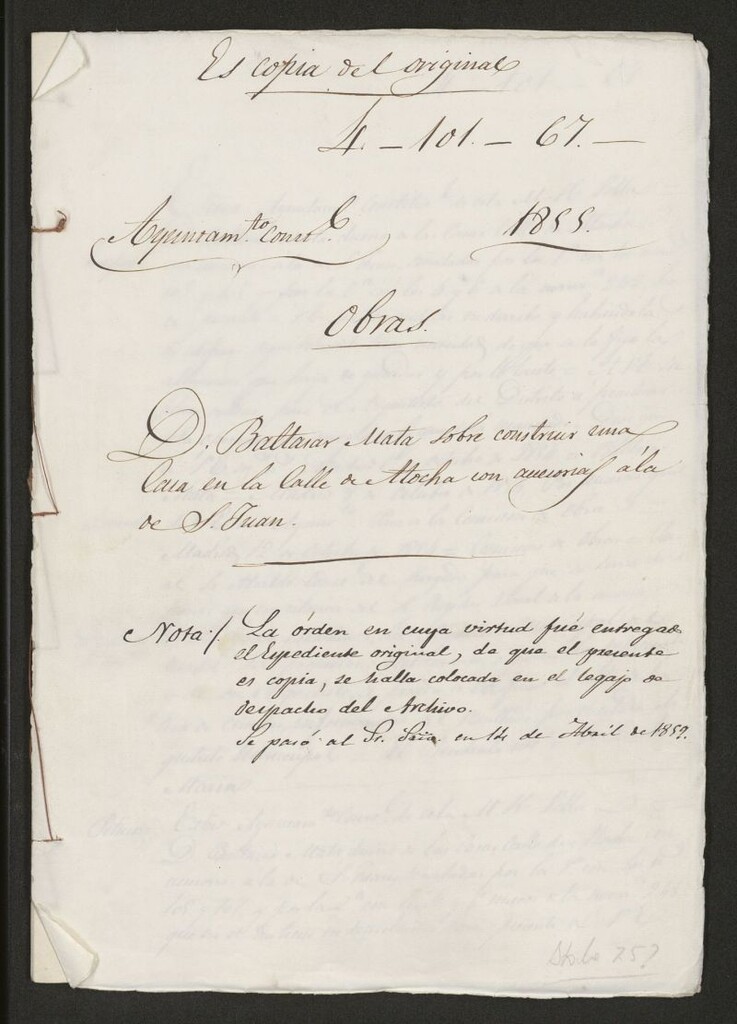 Es copia del original
4 - 101 - 67. -
Ayuntam.to Const.l 1855.
Obras.
D. Baltasar Mata sobre construir una
Casa en la Calle de Atocha con accesorias á la
de S. Juan.
Nota./ La órden en cuya virtud fué entregado
el Espediente original, de que el presente
es copia, se halla colocada en el legajo de
despacho del Archivo.
Se pasó al Sr. Srio. en 14 de Abril de 1859.